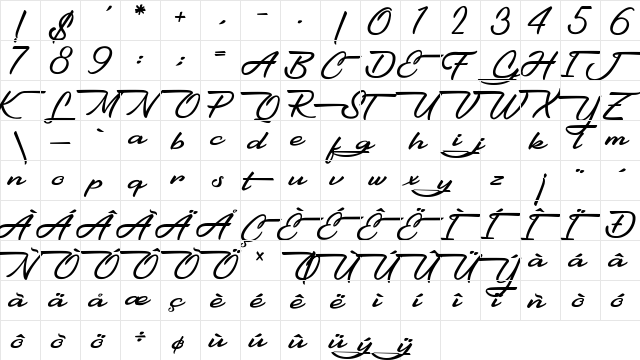 ! $ ' * + , - . / 0 1 2 3 4 5 6
7 8 9 : ; = A B C D E F G H I J
K L M N O P Q R S T U V W X Y Z
\ _ ` a b c d e f g h i j k l m
n o p q r s t u v w x y z ¡ ¨ ´
À Á Â Ã Ä Å Ç È É Ê Ë Ì Í Î Ï Ð
Ñ Ò Ó Ô Õ Ö × Ø Ù Ú Û Ü Ý à á â
ã ä å æ ç è é ê ë ì í î ï ñ ò ó
ô õ ö ÷ ø ù ú û ü ý ÿ